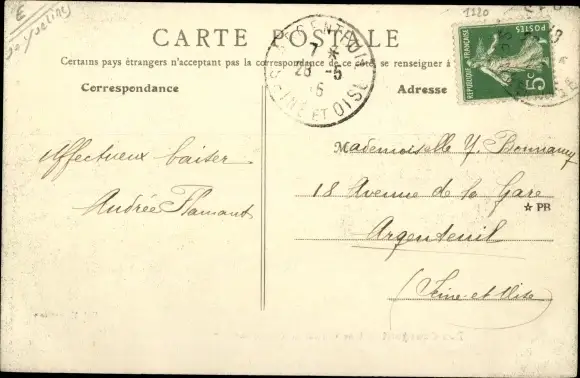 E
1120
CARTE POSTALE
Certains pays étrangers n'acceptant pas la correspondance de ce côté, se renseigner à
Correspondance
Adresse
7
25 -5
SEINE ET OISE
POSTES
REPUBLIQUE FRANÇAISE
5c
Affectueux baiser
Andrée Flamant
Mademoiselle Y. Bonnamy
18 Avenue de la Gare
☆ PB
Argenteuil
(Seine-et-Oise